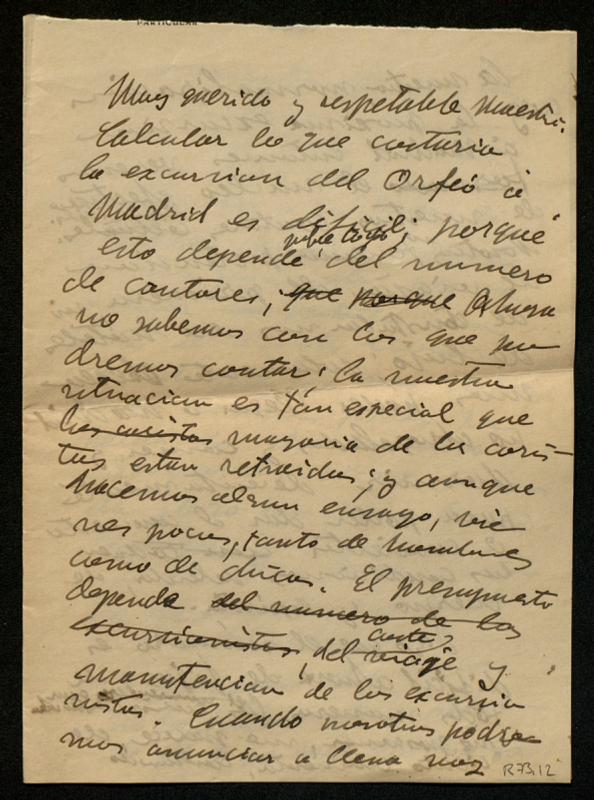 PARTICULAR
Muy querido y respetable Maestro.
Calcular lo que costaria
la excursion del Orfeó á
Madrid es dificil; porqué
sobre todo
esto depende del numero
de cantores; que porque Ahora
no sabemos con los que po
dremos contar; la nuestra
situacion es tan especial que
los coristas mayoria de los coris-
tas estan retraidos; y aunque
hacemos algun ensayo, vie
nen pocos, tanto de hombres
como de chicas. El presupuesto
depende del numero de los
coste,
excursionistas, del viaje y
manutencion de los excursio
nistas. Cuando nosotros podra
mos anunciar a llena voz
R.73.12